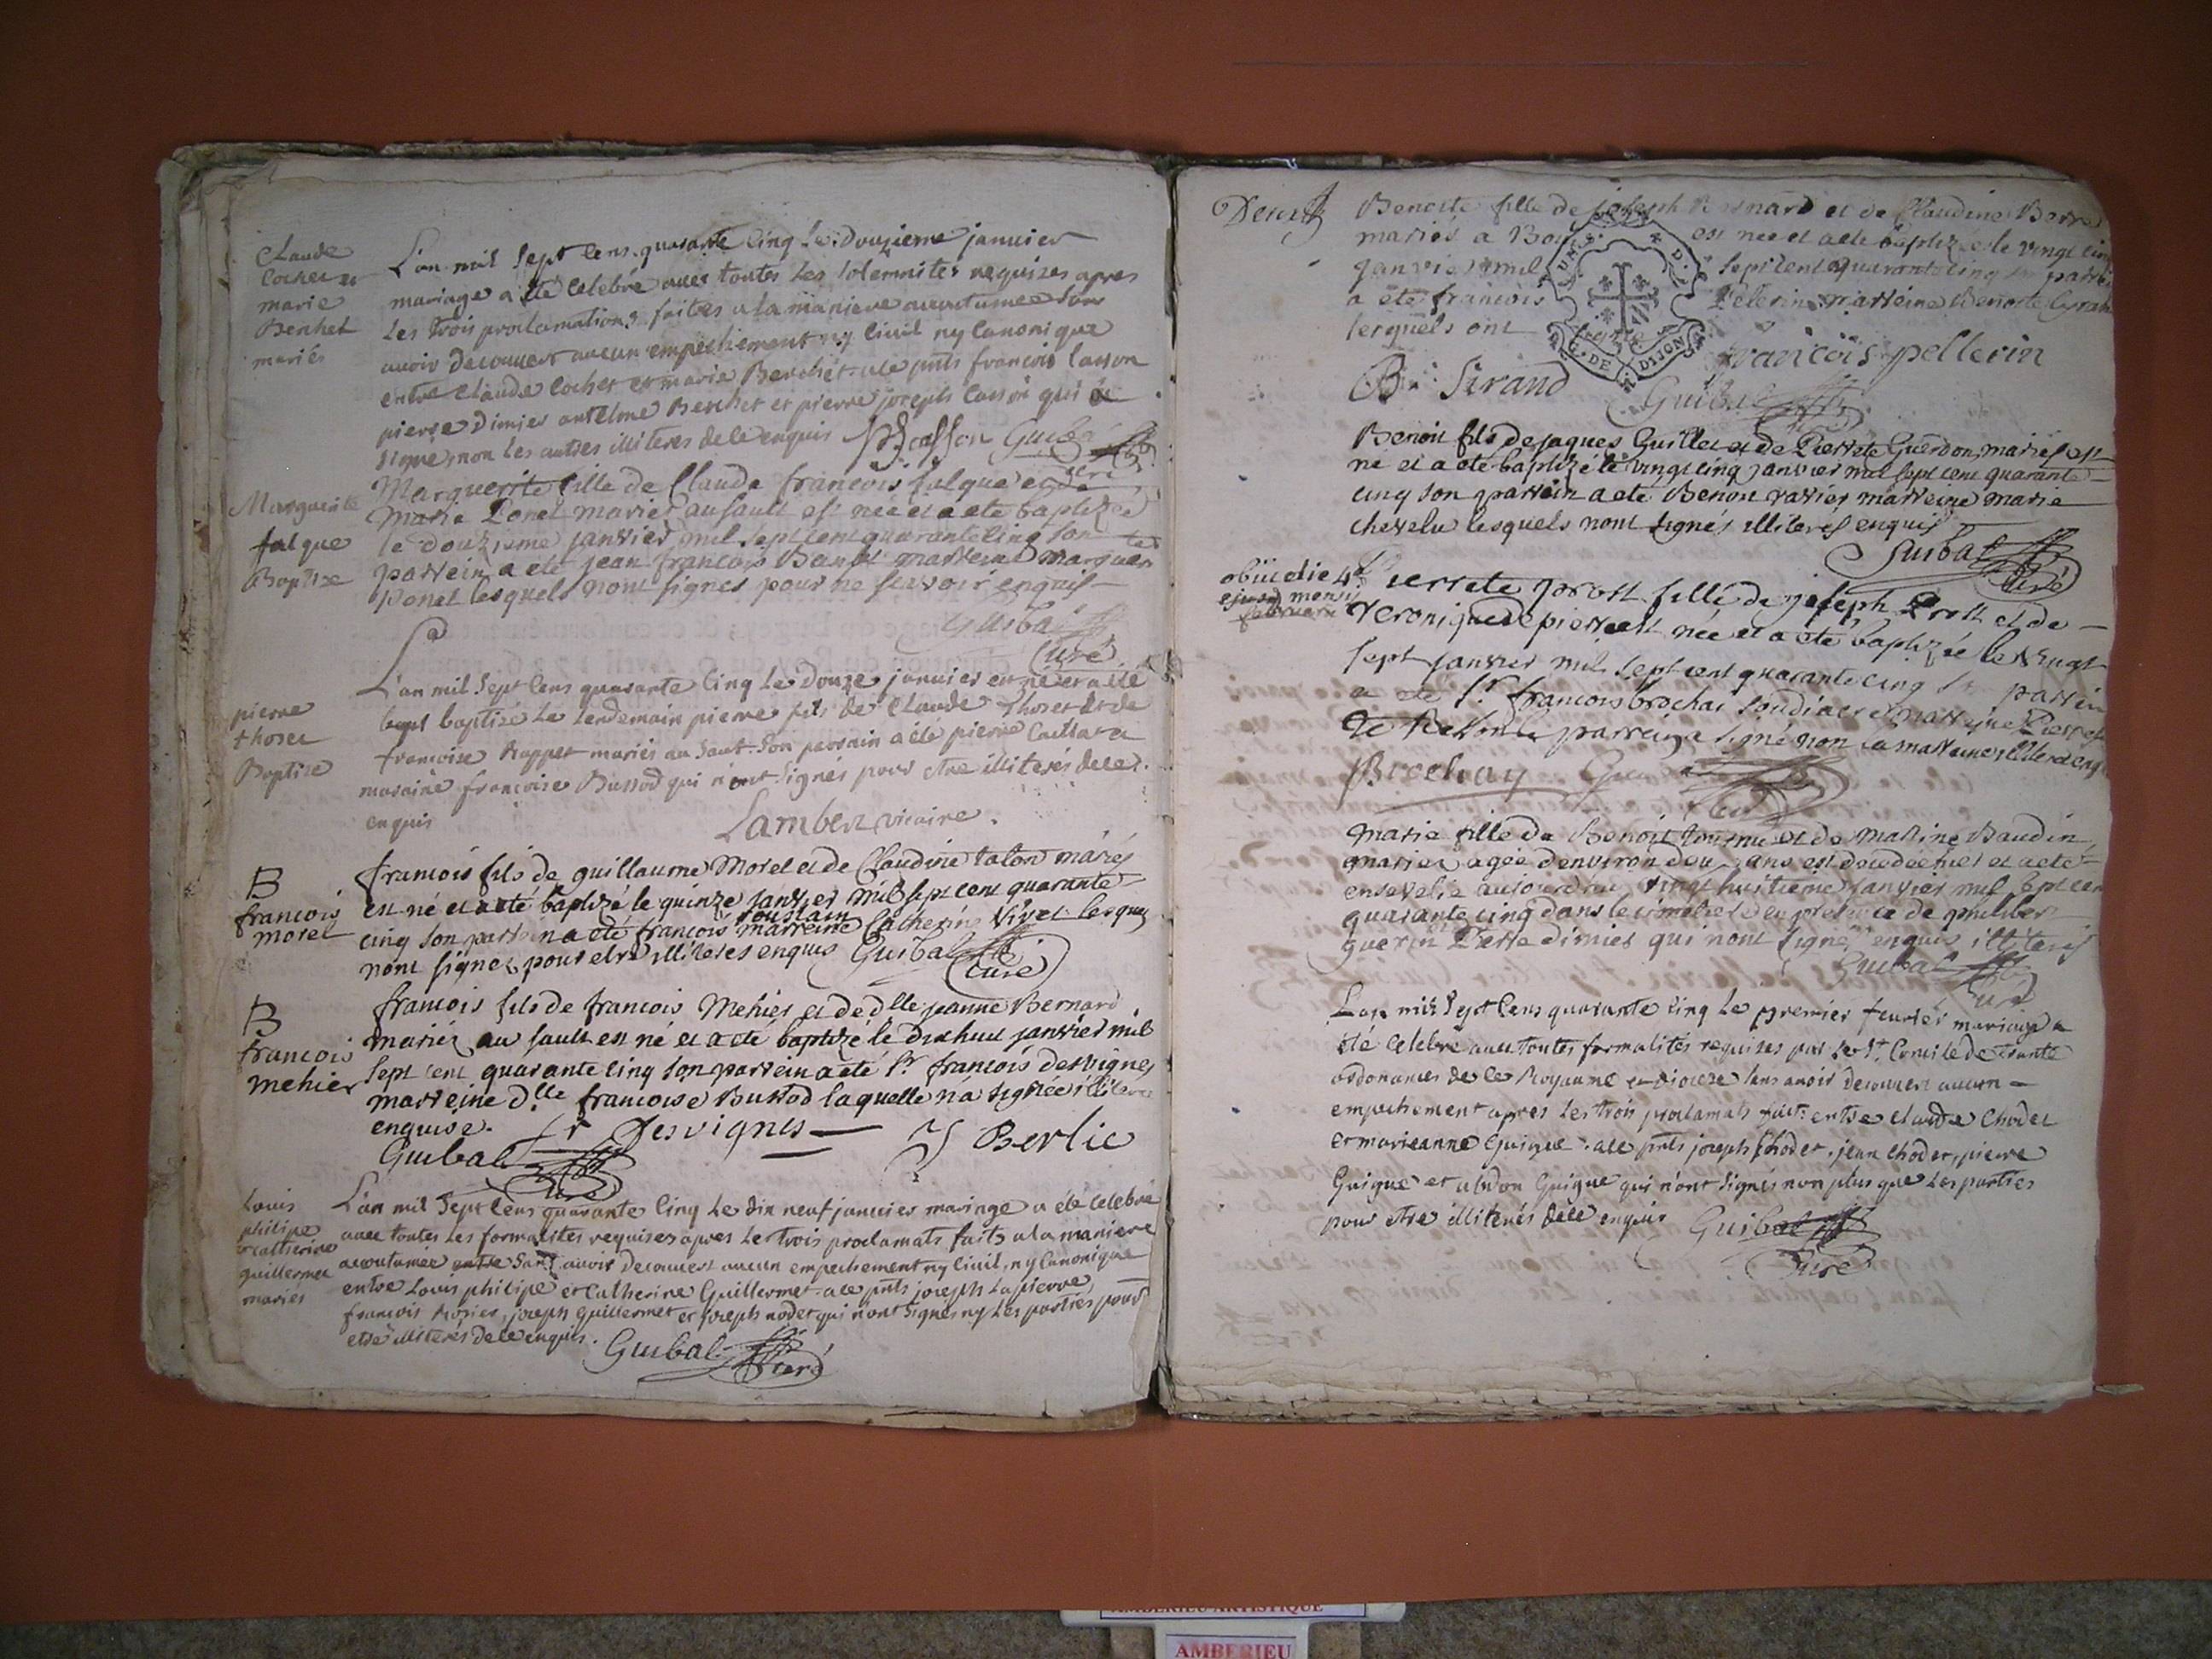 Claude
Cochet et
marie
Berchet
mariés
L'an mil sept cens quarante cinq le douzieme januier
mariage a été celebré auec toutes les solemnites requises apres
les trois proclamations faites a la maniere accoutumée sans
auoir decouuert aucun empechement ny ciuil ny canonique
entre Claude Cochet et marie Berchet. a ce pnts francois Casson
pierre Dimier antelme Berchet et pierre joseph Casson qui a
signé, non les autres illiteres de ce enquis PJCasson Guibal
Marguerite
falque
Baptise
Marguerite fille de Claude francois falque et
Marie Ponet mariés au sault est née et a été baptizée
le douzieme janvier mil sept cent quarante cinq son
parrein a eté jean francois marreine marguerite
Ponet lesquels n'ont signés pour ne scavoir enquis
Guibal
Curé
pierre
thoset
Baptise
L'an mil sept cens quarante cinq le douze januier est né et a été
baptisé le lendemain pierre fils de Claude Thoset et de
francoise Ruppet mariés au Saut. Son parrain a été pierre Caillat et
maraine francoise Bussod qui n'ont signés pour etre illiterés de ce
enquis
Lambert vicaire.
B
francois
morel
francois fils de guillaume Morel et de Claudine talon mariés
est né et a eté baptizé le quinze janvier mil sept cent quarante
cinq son parrein a eté francois roustain marreine Catherine Vivet lesquels
n'ont signez pour etre illiteres enquis Guibal
Curé
B
francois
mehier
francois fils de francois Mehier et de dlle jeanne Bernard
mariéz au sault est né et a eté baptizé le dixhuit janvier mil
sept cent quarante cinq son parrein a eté Sr. francois Desvignes
marreine dlle francoise Bussod laquelle n'a signée illiterée
enquise. fr Desvignes — J Berlie
Guibal
Curé
Louis
philipe
et catherine
guillermet
mariés
L'an mil sept cens quarante cinq le dix neuf januier mariage a été celebré
auec toutes les formalites requises apres les trois proclamats faits a la maniere
accoutumée entre sans auoir decouuert aucun empechement ny ciuil, ny canonique
entre Louis philipe et Catherine Guillermet. a ce pnts joseph Lapierre
francois Rosier, joseph guillermet et joseph nodet qui n'ont signés ny les parties pour
etre illiteres de ce enquis. Guibal
Curé
Benoite fille de joseph Bernard et de Claudine
mariés a est née et a eté baptizée le vingt cinq
janvier mil sept cent quarante cinq son parrein
a eté francois Pelerin marreine Benoite Girand
lesquels ont signé
francois pellerin
B. Sirand Guibal
GE. DE DIJON
Benoit fils de jaques Guillet et de Pierrete Guerdon mariés est
né et a eté baptizé le vingt cinq janvier mil sept cent quarante
cinq son parrein a eté Benoit ravier marreine marie
chevelu lesquels n'ont signés illiteres enquis
Guibal
Curé
obiit die 4a
ejusd mensis
februarii
Pierrete Prost fille de joseph Prost et de
Veronique Depierre est née et a eté baptizée le vingt
sept janvier mil sept cent quarante cinq son parrein
a eté Sr. francois brochai soudiacre marreine Pierrete
le parrein a signé non la marreine illiterée enquise
Brochay Guibal
Curé
Marie fille de Benoit tournu et de Marine Baudin
mariés agée d'environ deux ans est decedée hier et a eté
ensevelie aujourd'hui vingt huitieme janvier mil sept cent
quarante cinq dans le cimetiere en presence de philibert
guerin Pierre dimier qui n'ont signés enquis illiterés
Guibal
Curé
L'an mil sept cens quarante cinq le premier feurier mariage a
été celebré auec toutes formalités requises par le St. Concile de trante
ordonances de ce Royaume et diocese sans auoir decouuert aucun
empechement apres les trois proclamats faits entre claude Chodet
et marieanne Guigue. a ce pnts joseph Chodet, jean chodet, pierre
Guigue et abdon Guigue qui n'ont signés non plus que les parties
pour etre illiterés de ce enquis Guibal
Curé
AMBERIEU ARTISTIQUE
AMBERIEU